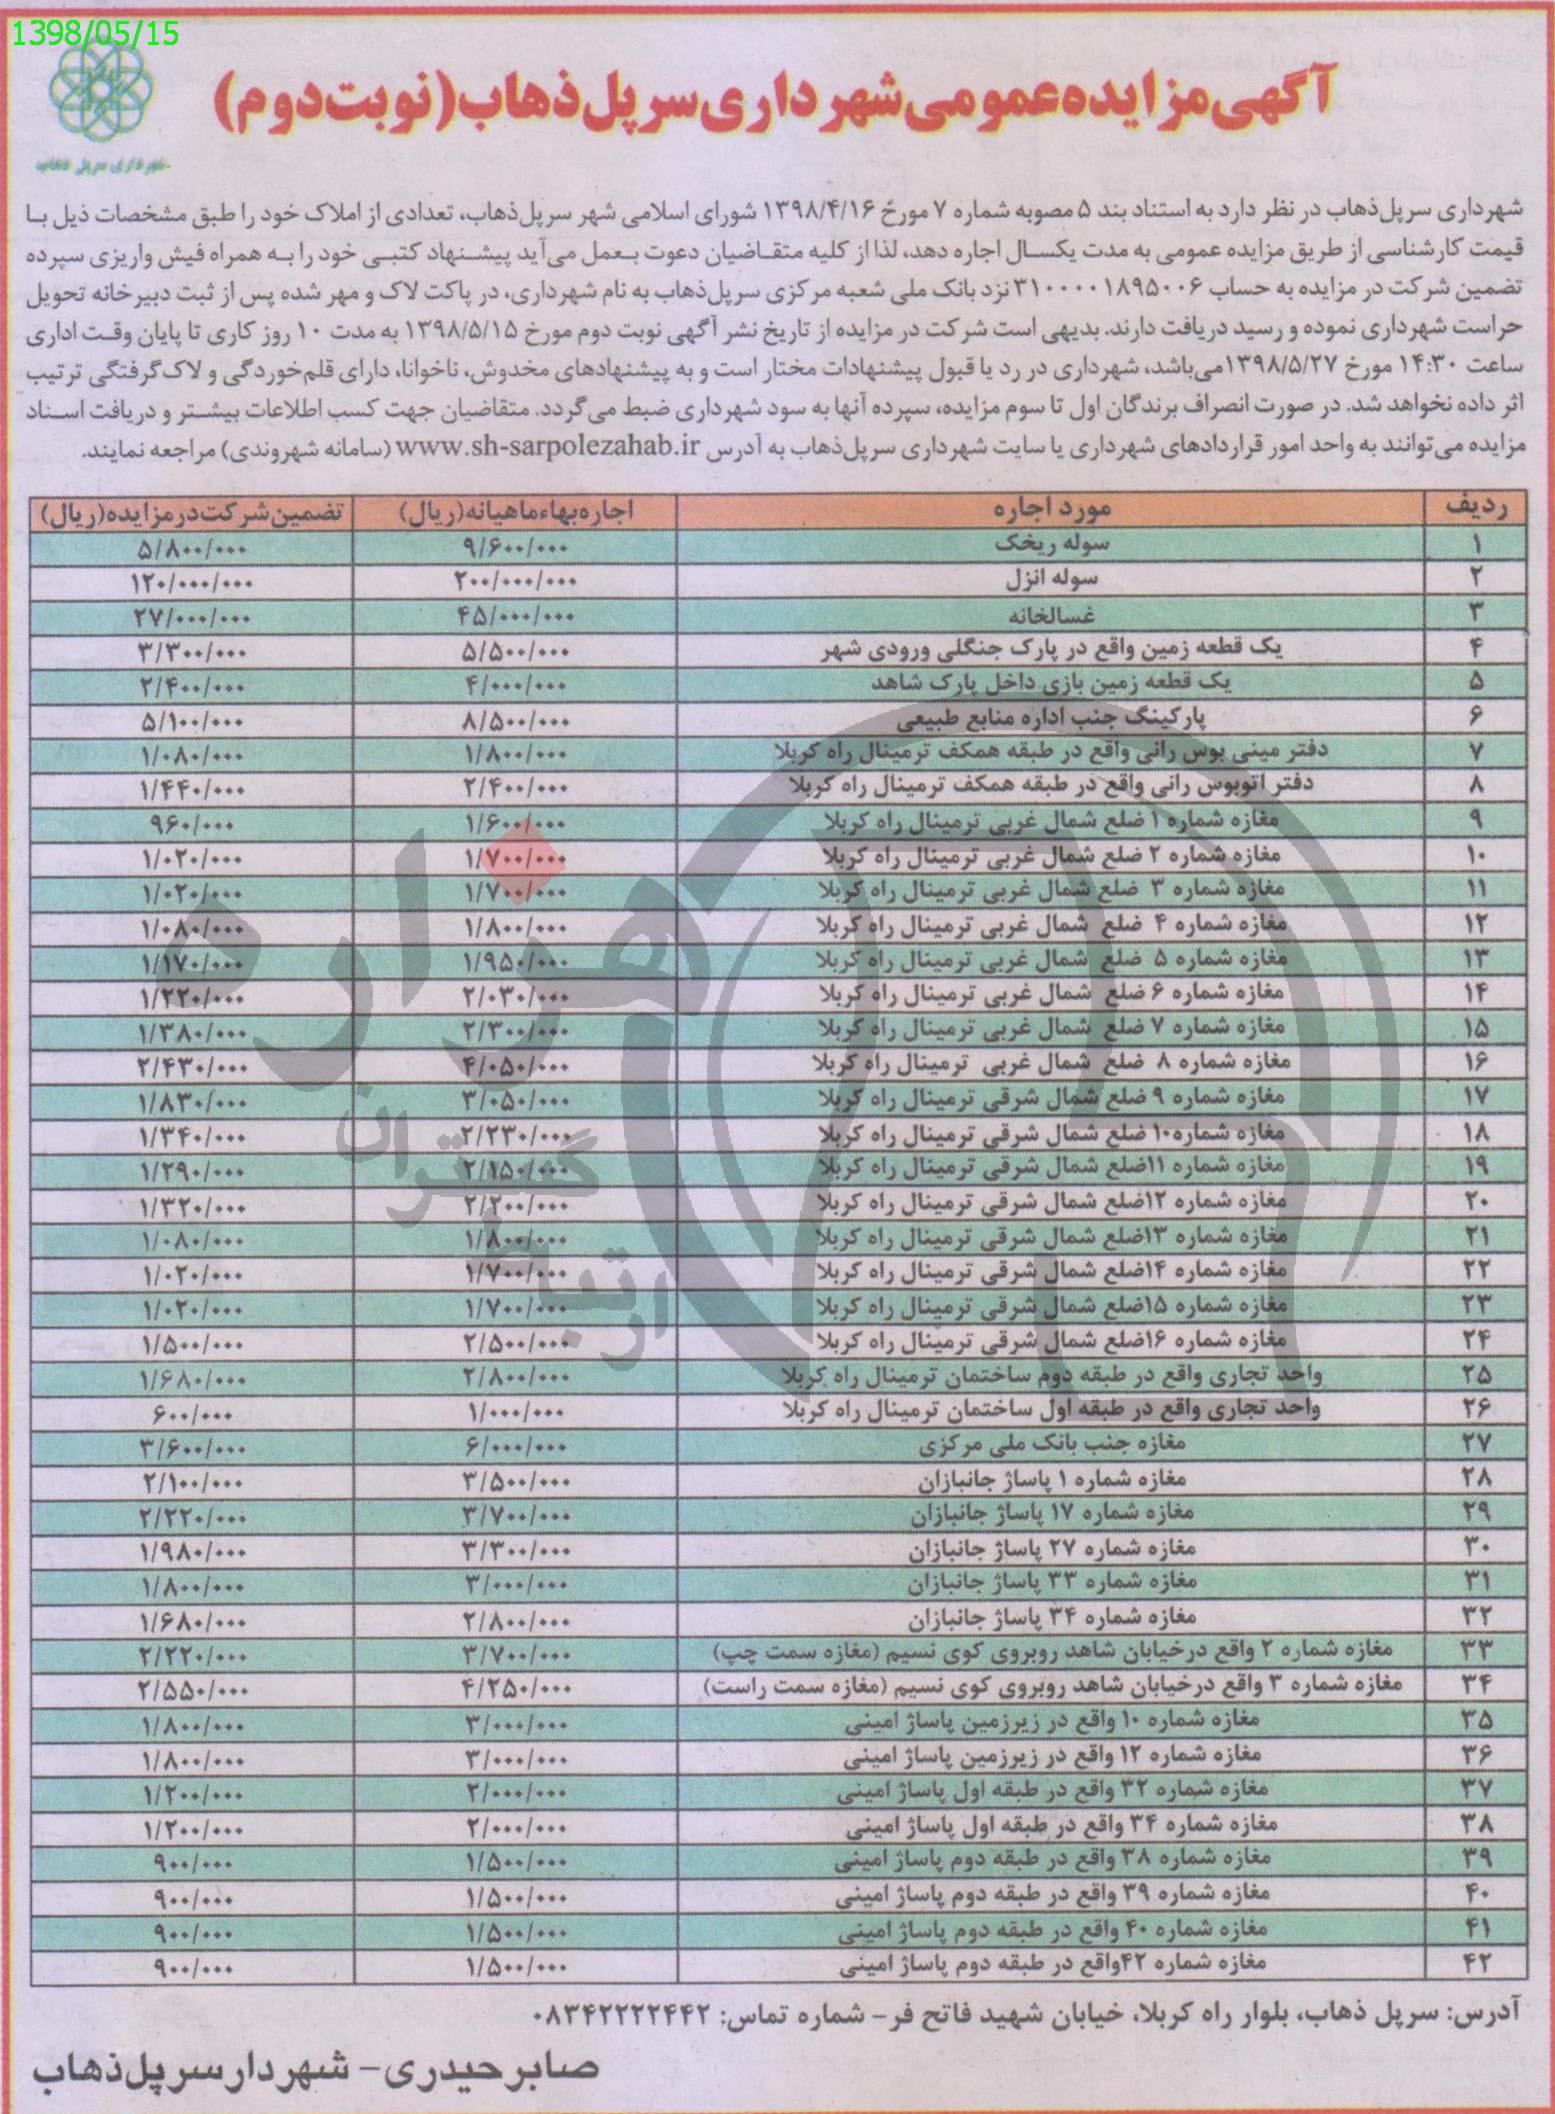 1398/05/15
آگهی مزایده عمومی شهرداری سرپل ذهاب (نوبت دوم)
شهرداری سرپل ذهاب
شهرداری سرپل‌ذهاب در نظر دارد به استناد بند ۵ مصوبه شماره ۷ مورخ ۱۳۹۸/۴/۱۶ شورای اسلامی شهر سرپل‌ذهاب، تعدادی از املاک خود را طبق مشخصات ذیل با
قیمت کارشناسی از طریق مزایده عمومی به مدت یکسال اجاره دهد، لذا از کلیه متقاضیان دعوت بعمل می‌آید پیشنهاد کتبی خود را به همراه فیش واریزی سپرده
تضمین شرکت در مزایده به حساب ۳۱۰۰۰۰۱۸۹۵۰۰۶ نزد بانک ملی شعبه مرکزی سرپل‌ذهاب به نام شهرداری، در پاکت لاک و مهر شده پس از ثبت دبیرخانه تحویل
حراست شهرداری نموده و رسید دریافت دارند. بدیهی است شرکت در مزایده از تاریخ نشر آگهی نوبت دوم مورخ ۱۳۹۸/۵/۱۵ به مدت ۱۰ روز کاری تا پایان وقت اداری
ساعت ۱۴:۳۰ مورخ ۱۳۹۸/۵/۲۷می‌باشد، شهرداری در رد یا قبول پیشنهادات مختار است و به پیشنهادهای مخدوش، ناخوانا، دارای قلم‌خوردگی و لاک‌گرفتگی ترتیب
اثر داده نخواهد شد. در صورت انصراف برندگان اول تا سوم مزایده، سپرده آنها به سود شهرداری ضبط می‌گردد. متقاضیان جهت کسب اطلاعات بیشتر و دریافت اسناد
مزایده می‌توانند به واحد امور قراردادهای شهرداری یا سایت شهرداری سرپل‌ذهاب به آدرس www.sh-sarpolezahab.ir (سامانه شهروندی) مراجعه نمایند.
ردیف مورد اجاره اجاره‌بهاء ماهیانه (ریال) تضمین شرکت در مزایده (ریال)
۱ سوله ریخک ۹/۶۰۰/۰۰۰ ۵/۸۰۰/۰۰۰
۲ سوله انزل ۲۰۰/۰۰۰/۰۰۰ ۱۲۰/۰۰۰/۰۰۰
۳ غسالخانه ۴۵/۰۰۰/۰۰۰ ۲۷/۰۰۰/۰۰۰
۴ یک قطعه زمین واقع در پارک جنگلی ورودی شهر ۵/۵۰۰/۰۰۰ ۳/۳۰۰/۰۰۰
۵ یک قطعه زمین بازی داخل پارک شاهد ۴/۰۰۰/۰۰۰ ۲/۴۰۰/۰۰۰
۶ پارکینگ جنب اداره منابع طبیعی ۸/۵۰۰/۰۰۰ ۵/۱۰۰/۰۰۰
۷ دفتر مینی بوس رانی واقع در طبقه همکف ترمینال راه کربلا ۱/۸۰۰/۰۰۰ ۱/۰۸۰/۰۰۰
۸ دفتر اتوبوس رانی واقع در طبقه همکف ترمینال راه کربلا ۲/۴۰۰/۰۰۰ ۱/۴۴۰/۰۰۰
۹ مغازه شماره ۱ ضلع شمال غربی ترمینال راه کربلا ۱/۶۰۰/۰۰۰ ۹۶۰/۰۰۰
۱۰ مغازه شماره ۲ ضلع شمال غربی ترمینال راه کربلا ۱/۷۰۰/۰۰۰ ۱/۰۲۰/۰۰۰
۱۱ مغازه شماره ۳ ضلع شمال غربی ترمینال راه کربلا ۱/۷۰۰/۰۰۰ ۱/۰۲۰/۰۰۰
۱۲ مغازه شماره ۴ ضلع شمال غربی ترمینال راه کربلا ۱/۸۰۰/۰۰۰ ۱/۰۸۰/۰۰۰
۱۳ مغازه شماره ۵ ضلع شمال غربی ترمینال راه کربلا ۱/۹۵۰/۰۰۰ ۱/۱۷۰/۰۰۰
۱۴ مغازه شماره ۶ ضلع شمال غربی ترمینال راه کربلا ۲/۰۳۰/۰۰۰ ۱/۲۲۰/۰۰۰
۱۵ مغازه شماره ۷ ضلع شمال غربی ترمینال راه کربلا ۲/۳۰۰/۰۰۰ ۱/۳۸۰/۰۰۰
۱۶ مغازه شماره ۸ ضلع شمال غربی ترمینال راه کربلا ۴/۰۵۰/۰۰۰ ۲/۴۳۰/۰۰۰
۱۷ مغازه شماره ۹ ضلع شمال شرقی ترمینال راه کربلا ۳/۰۵۰/۰۰۰ ۱/۸۳۰/۰۰۰
۱۸ مغازه شماره۱۰ ضلع شمال شرقی ترمینال راه کربلا ۲/۲۳۰/۰۰۰ ۱/۳۴۰/۰۰۰
۱۹ مغازه شماره ۱۱ضلع شمال شرقی ترمینال راه کربلا ۲/۱۵۰/۰۰۰ ۱/۲۹۰/۰۰۰
۲۰ مغازه شماره ۱۲ضلع شمال شرقی ترمینال راه کربلا ۲/۲۰۰/۰۰۰ ۱/۳۲۰/۰۰۰
۲۱ مغازه شماره ۱۳ضلع شمال شرقی ترمینال راه کربلا ۱/۸۰۰/۰۰۰ ۱/۰۸۰/۰۰۰
۲۲ مغازه شماره ۱۴ضلع شمال شرقی ترمینال راه کربلا ۱/۷۰۰/۰۰۰ ۱/۰۲۰/۰۰۰
۲۳ مغازه شماره ۱۵ضلع شمال شرقی ترمینال راه کربلا ۱/۷۰۰/۰۰۰ ۱/۰۲۰/۰۰۰
۲۴ مغازه شماره ۱۶ضلع شمال شرقی ترمینال راه کربلا ۲/۵۰۰/۰۰۰ ۱/۵۰۰/۰۰۰
۲۵ واحد تجاری واقع در طبقه دوم ساختمان ترمینال راه کربلا ۲/۸۰۰/۰۰۰ ۱/۶۸۰/۰۰۰
۲۶ واحد تجاری واقع در طبقه اول ساختمان ترمینال راه کربلا ۱/۰۰۰/۰۰۰ ۶۰۰/۰۰۰
۲۷ مغازه جنب بانک ملی مرکزی ۶/۰۰۰/۰۰۰ ۳/۶۰۰/۰۰۰
۲۸ مغازه شماره ۱ پاساژ جانبازان ۳/۵۰۰/۰۰۰ ۲/۱۰۰/۰۰۰
۲۹ مغازه شماره ۱۷ پاساژ جانبازان ۳/۷۰۰/۰۰۰ ۲/۲۲۰/۰۰۰
۳۰ مغازه شماره ۲۷ پاساژ جانبازان ۳/۳۰۰/۰۰۰ ۱/۹۸۰/۰۰۰
۳۱ مغازه شماره ۳۳ پاساژ جانبازان ۳/۰۰۰/۰۰۰ ۱/۸۰۰/۰۰۰
۳۲ مغازه شماره ۳۴ پاساژ جانبازان ۲/۸۰۰/۰۰۰ ۱/۶۸۰/۰۰۰
۳۳ مغازه شماره ۲ واقع درخیابان شاهد روبروی کوی نسیم (مغازه سمت چپ) ۳/۷۰۰/۰۰۰ ۲/۲۲۰/۰۰۰
۳۴ مغازه شماره ۳ واقع درخیابان شاهد روبروی کوی نسیم (مغازه سمت راست) ۴/۲۵۰/۰۰۰ ۲/۵۵۰/۰۰۰
۳۵ مغازه شماره ۱۰ واقع در زیرزمین پاساژ امینی ۳/۰۰۰/۰۰۰ ۱/۸۰۰/۰۰۰
۳۶ مغازه شماره ۱۲ واقع در زیرزمین پاساژ امینی ۳/۰۰۰/۰۰۰ ۱/۸۰۰/۰۰۰
۳۷ مغازه شماره ۳۲ واقع در طبقه اول پاساژ امینی ۲/۰۰۰/۰۰۰ ۱/۲۰۰/۰۰۰
۳۸ مغازه شماره ۳۴ واقع در طبقه اول پاساژ امینی ۲/۰۰۰/۰۰۰ ۱/۲۰۰/۰۰۰
۳۹ مغازه شماره ۳۸ واقع در طبقه دوم پاساژ امینی ۱/۵۰۰/۰۰۰ ۹۰۰/۰۰۰
۴۰ مغازه شماره ۳۹ واقع در طبقه دوم پاساژ امینی ۱/۵۰۰/۰۰۰ ۹۰۰/۰۰۰
۴۱ مغازه شماره ۴۰ واقع در طبقه دوم پاساژ امینی ۱/۵۰۰/۰۰۰ ۹۰۰/۰۰۰
۴۲ مغازه شماره ۴۲واقع در طبقه دوم پاساژ امینی ۱/۵۰۰/۰۰۰ ۹۰۰/۰۰۰
هزاره
ارتباط گستران
آدرس: سرپل ذهاب، بلوار راه کربلا، خیابان شهید فاتح فر- شماره تماس: ۰۸۳۴۲۲۲۲۴۴۲
صابر حیدری - شهردار سرپل‌ذهاب